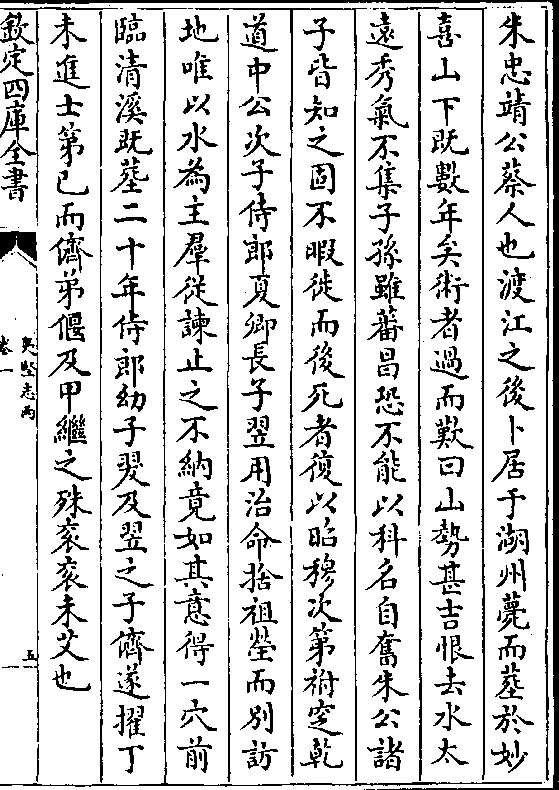 朱忠靖公蔡人也渡江之後卜居于湖州薨而塟於妙
喜山下既數年矣術者過而歎曰山勢甚吉恨去水太
遠秀氣不集子孫雖蕃昌恐不能以科名自奮朱公諸
子皆知之固不暇徙而後死者復以昭穆次第祔窆乾
道中公次子侍郎夏卿長子翌用治命捨祖塋而別訪
地唯以水為主羣從諫止之不納竟如其意得一穴前
臨清溪既塟二十年侍郎幼子翌及翌之子儕遂擢丁
未進士第已而儕弟偃及甲繼之殊衮衮未艾也
欽定四庫全書
夷堅志丙
卷一
五